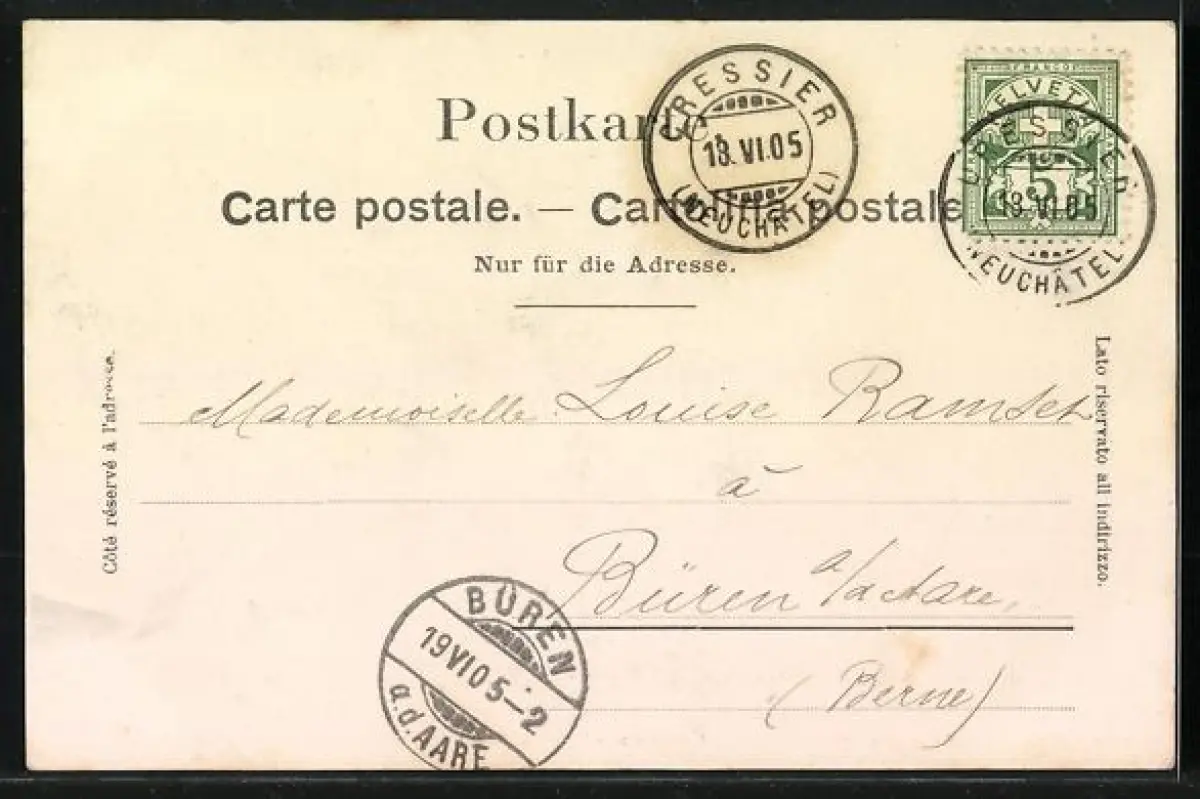 Postkarte
CRESSIER
18.VI.05
(NEUCHÂTEL)
FRANCO
HELVETIA
5
CRESSIER
18.VI.05
NEUCHÂTEL
Carte postale. — Cartolina postale
Nur für die Adresse.
Côté réservé à l'adresse.
Lato riservato all indirizzo.
Mademoiselle Louise Ramset
à
Büren a/aAare,
(Berne)
BÜREN
19 VI 05 – 2
a.d.AARE